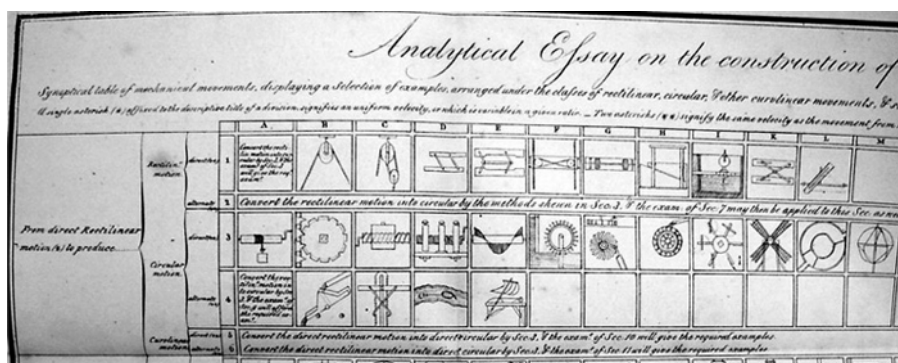 Analytical Essay on the construction of
Synoptical table of mechanical movements, displaying a Selection of examples, arranged under the classes of rectilinear, circular, & other curvilinear movements, &
A single asterisk (*) affixed to the descriptive title of a division, signifies an uniform velocity, or which is variable in a given ratio. — Two asterisks (**) signify the same velocity as the movement, from
A B C D E F G H I K L M
motion
directions
1
Convert the
will give the
2 Convert the rectilinear motion into circular by the methods shewn in Sec. 3, & the exam. of Sec. 7 may then be applied to this Sec. as
From direct Rectilinear
motion (*) to produce
3
Circular
motion
4
Convert the
the required
5 Convert the direct rectilinear motion into direct circular by Sec. 3, & the exam. of Sec. 10 will give the required examples
motion
6 Convert the direct rectilinear motion into direct circular by Sec. 3, & the exam. of Sec. 11 will give the required examples